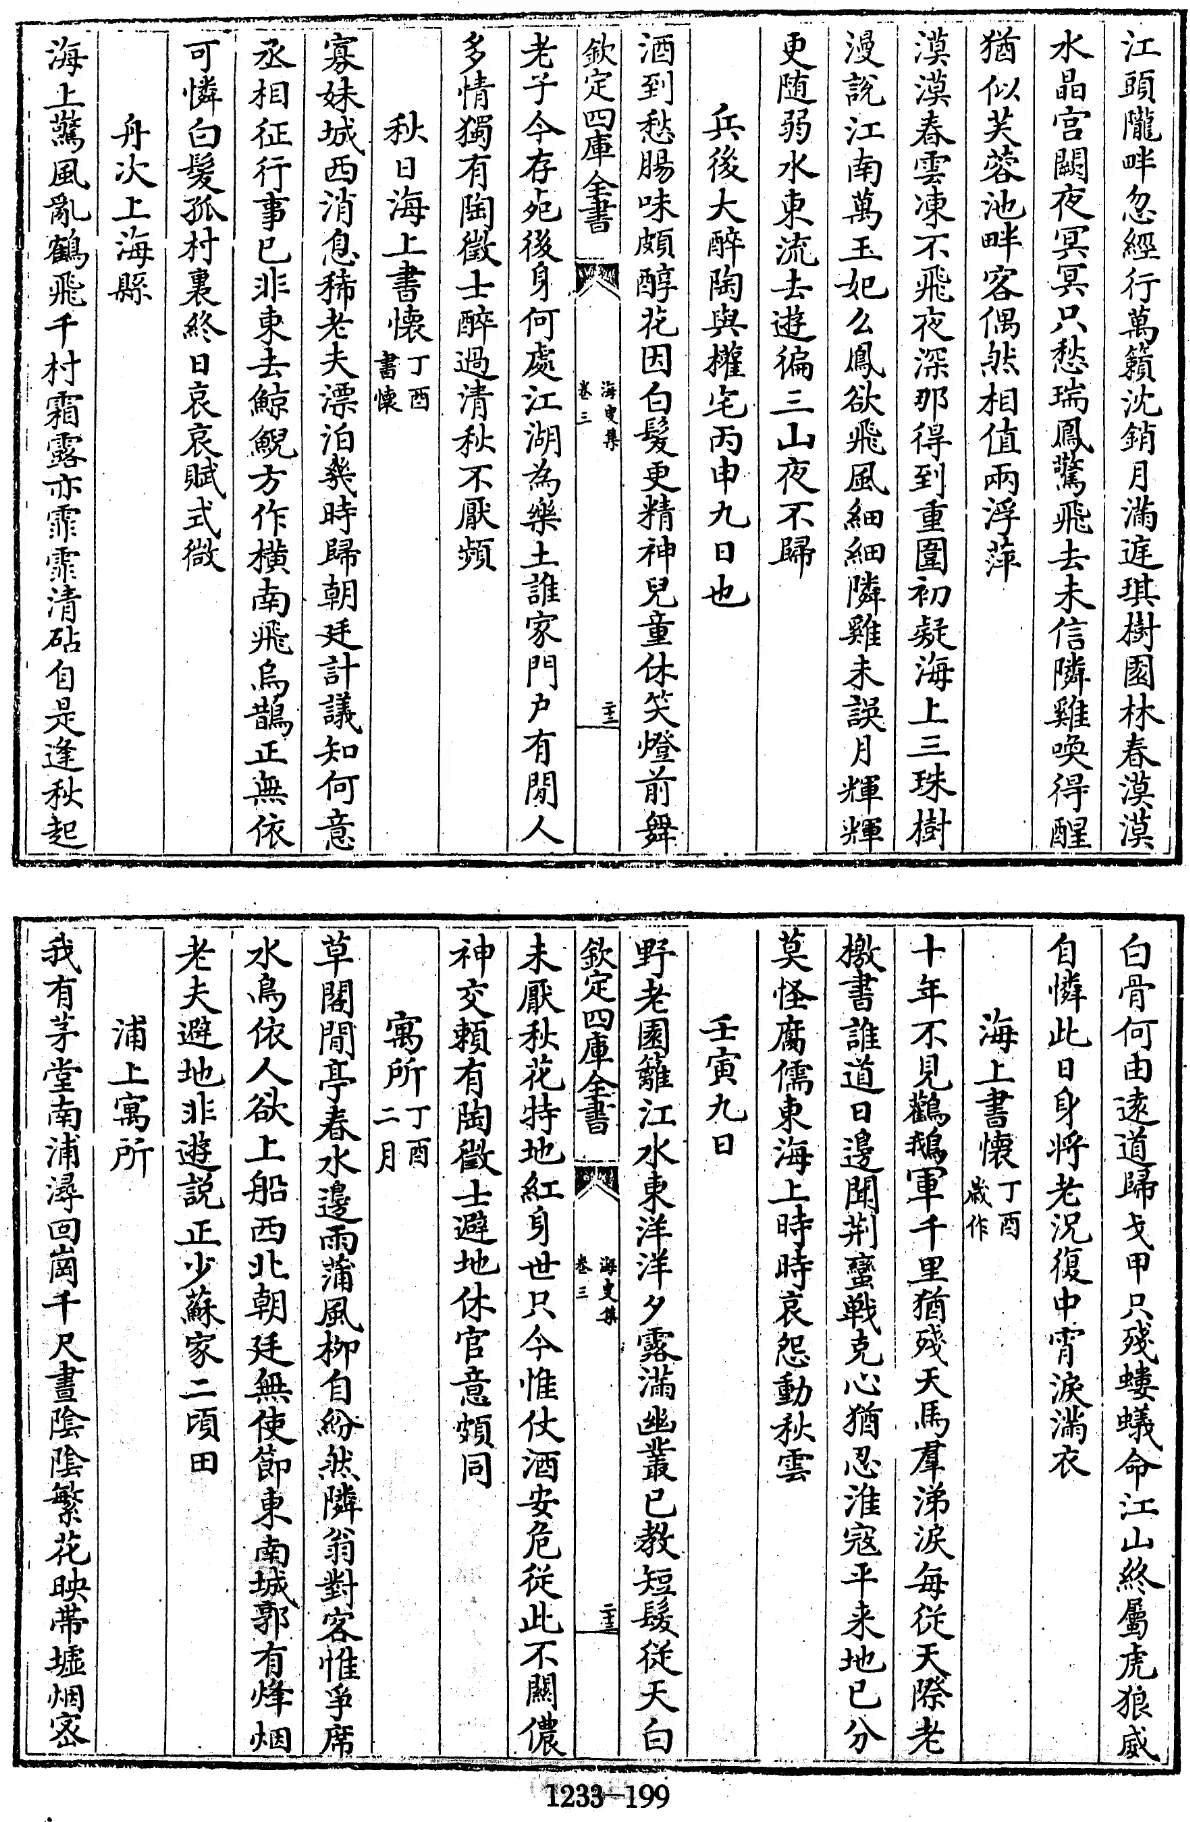 江頭隴畔忽經行萬籟沈銷月滿庭琪樹園林春漠漠
水晶宫闕夜冥冥只愁瑞鳳驚飛去未信隣雞喚得醒
猶似芙蓉池畔客偶然相值兩浮萍
漠漠春雲凍不飛夜深那得到重圍初疑海上三珠樹
漫說江南萬玉妃么鳳欲飛風細細隣雞未誤月輝輝
更随弱水東流去遊徧三山夜不歸
兵後大醉陶與權宅丙申九日也
酒到愁腸味頗醇花因白髮更精神兒童休笑燈前舞
欽定四庫全書
海叟集
卷三
二十三
老子今存死後身何處江湖為樂土誰家門户有閒人
多情獨有陶徵士醉過清秋不厭頻
秋日海上書懷丁酉書懷
寡妹城西消息稀老夫漂泊幾時歸朝廷計議知何意
丞相征行事已非東去鯨鯢方作橫南飛烏鵲正無依
可憐白髮孤村裏終日哀哀賦式微
舟次上海縣
海上驚風亂鶴飛千村霜露亦霏霏清砧自是逢秋起
白骨何由逺道歸戈甲只殘螻蟻命江山終屬虎狼威
自憐此日身將老況復中宵淚滿衣
海上書懷丁酉歲作
十年不見鸛鵝軍千里猶殘天馬羣涕淚每從天際老
檄書誰道日邊聞荆蠻戰克心猶忍淮寇平来地已分
莫怪腐儒東海上時時哀怨動秋雲
壬寅九日
野老園籬江水東洋洋夕露滿幽叢已教短髮從天白
欽定四庫全書
海叟集
卷三
二十三
未厭秋花特地紅身世只今惟仗酒安危從此不關儂
神交頼有陶徵士避地休官意頗同
寓所丁酉二月
草閣閒亭春水邊雨蒲風柳自紛然隣翁對客惟爭席
水鳥依人欲上船西北朝廷無使節東南城郭有烽烟
老夫避地非遊説正少蘇家二頃田
浦上寓所
我有茅堂南浦潯回崗千尺晝陰陰繁花映帶墟烟宻
1233—199